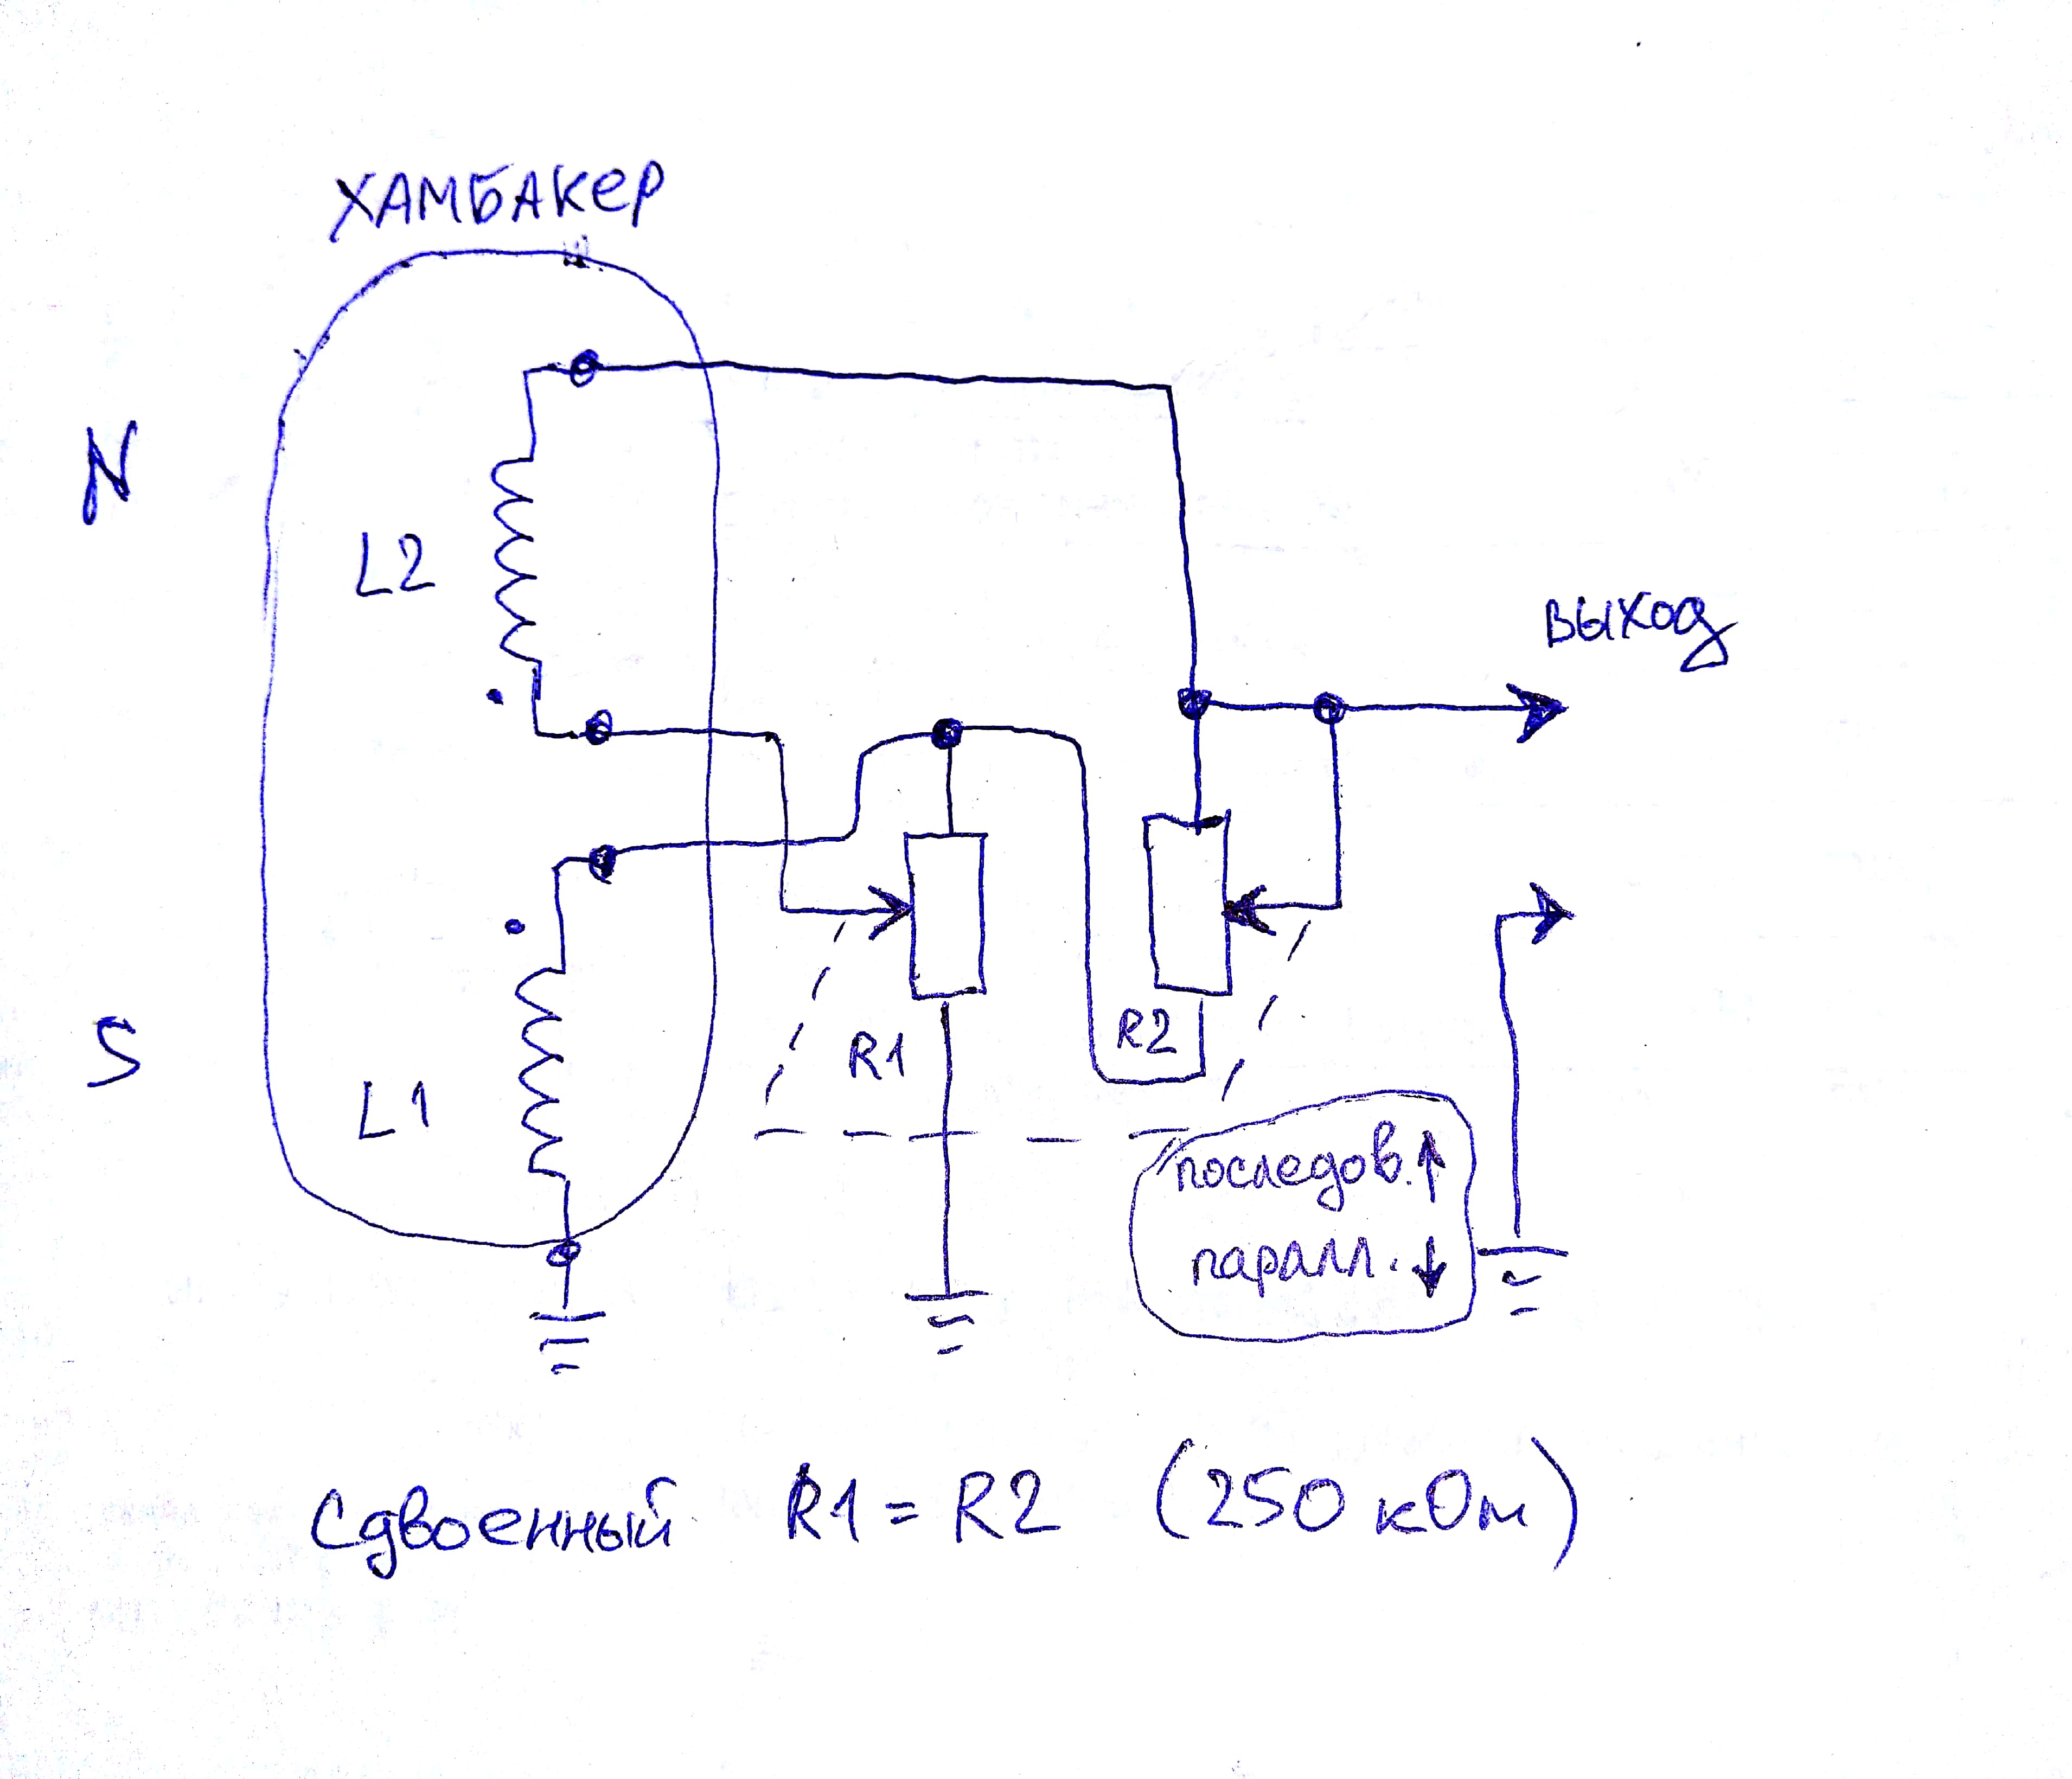 ХАМБАКЕР
N
L2
ВЫХОД
S
L1
R1
R2
последов. ↑
паралл. ↓
Сдвоенный R1 = R2 (250 кОм)